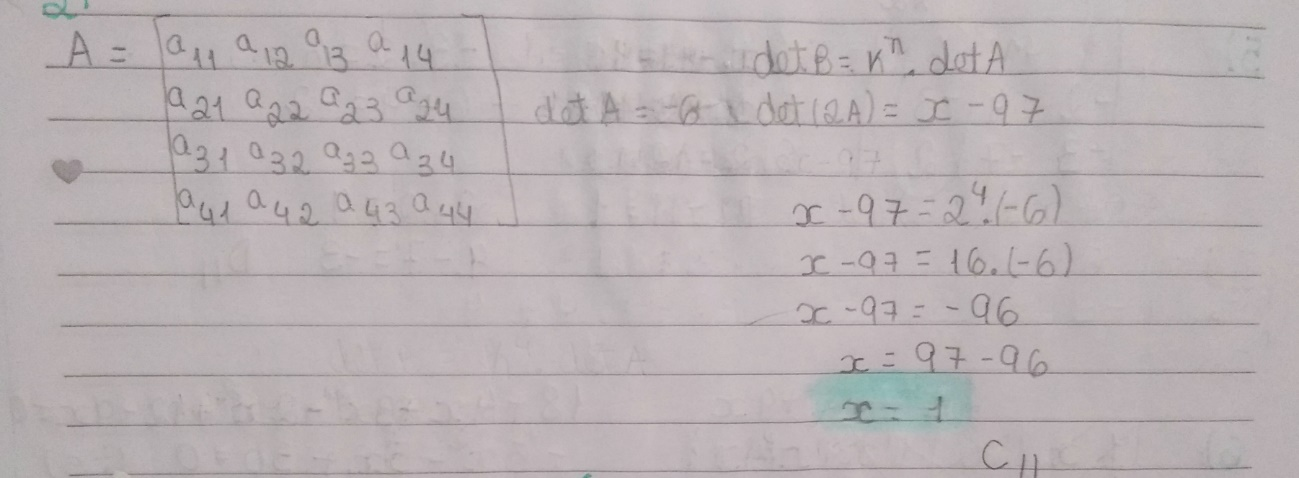 2
A = a11 a12 a13 a14
a21 a22 a23 a24
a31 a32 a33 a34
a41 a42 a43 a44
det B = K^n . det A
det A = -6 det(2A) = x - 97
x - 97 = 2^4.(-6)
x - 97 = 16.(-6)
x - 97 = -96
x = 97 - 96
x = 1
C11